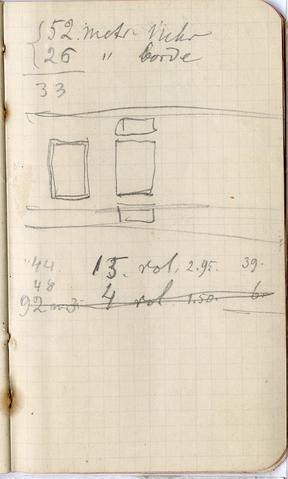 52 metr
26 " borde
33
44 13. rol. 2.95. 39.
48
92 4 rol 1.50. 6